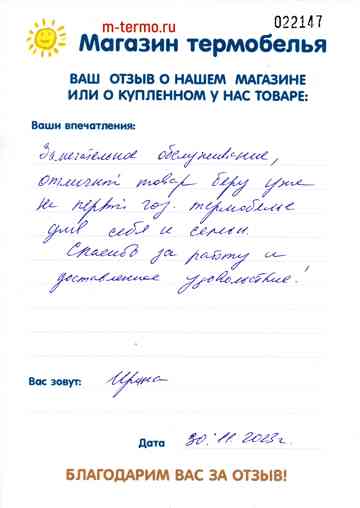 m-termo.ru
022147
Магазин термобелья
ВАШ ОТЗЫВ О НАШЕМ МАГАЗИНЕ
ИЛИ О КУПЛЕННОМ У НАС ТОВАРЕ:
Ваши впечатления:
Замечательное обслуживание,
отличный товар беру уже
не первый год термобелье
для себя и семьи.
Спасибо за работу и
доставленное удовольствие!
Вас зовут: Ирина
Дата 30.11.2023г.
БЛАГОДАРИМ ВАС ЗА ОТЗЫВ!